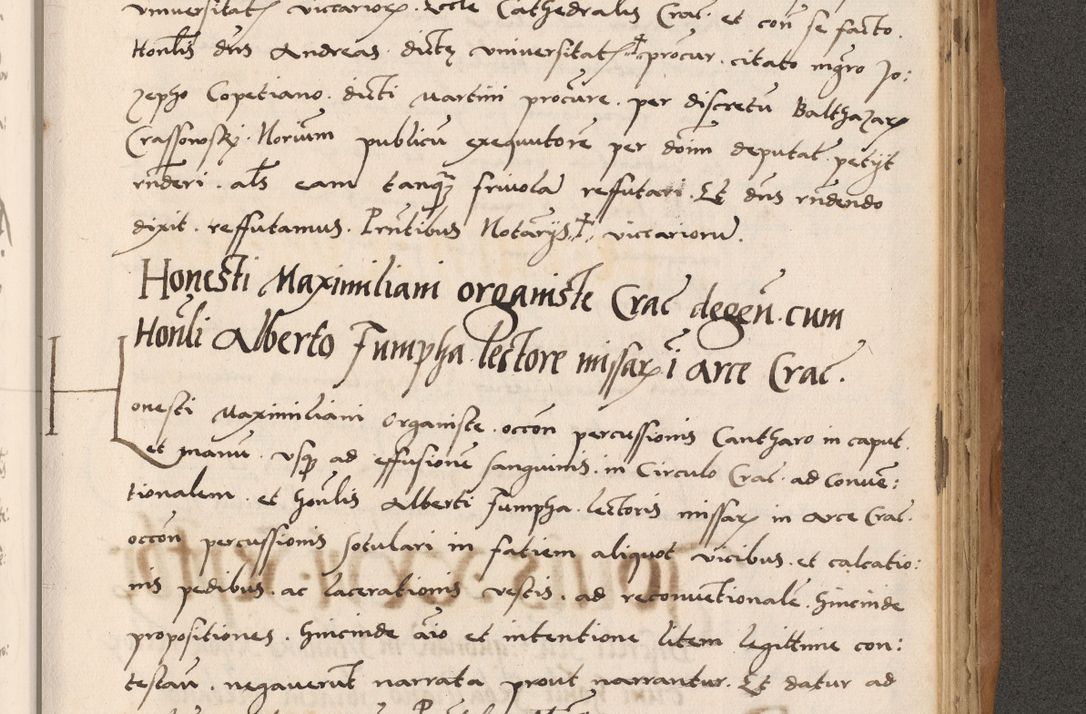 universitatis viccariorum Eccle Cathedralis Crac. et con se facto.
Honlis dns Andreas dicte universitatis procur. citato mgro Jo:
zepho Copetiano dicti Martini procure. per discretu Balthazar
Crassowski Norium publicu exequutore per doim deputat petijt
rnderi. als eam tanq frivola reffutari. Et dns rndendo
dixit. reffutamus. Prntibus Notarijs viccarioru.
Honesti Maximiliani organiste Crac degen. cum
Honli Alberto Fumpha lectore missar i arce Crac.
Honesti Maximiliani Organiste. occon percussionis Cantharo in caput
et manu. usq ad effusione sanguinis. in Circulo Crac. ad conve:
tionalem. et honlis Alberti Fumpha. lectoris missar in Arce Crac.
occon percussionis sotulari in faciem aliquot vicibus. et calcatio:
nis pedibus. ac lacerationis vestis. ad reconvetionale. hincinde
propositiones. hincinde aio et intentione litem legittime con:
testau. negaverut narrata prout narrantur. Et datur ad